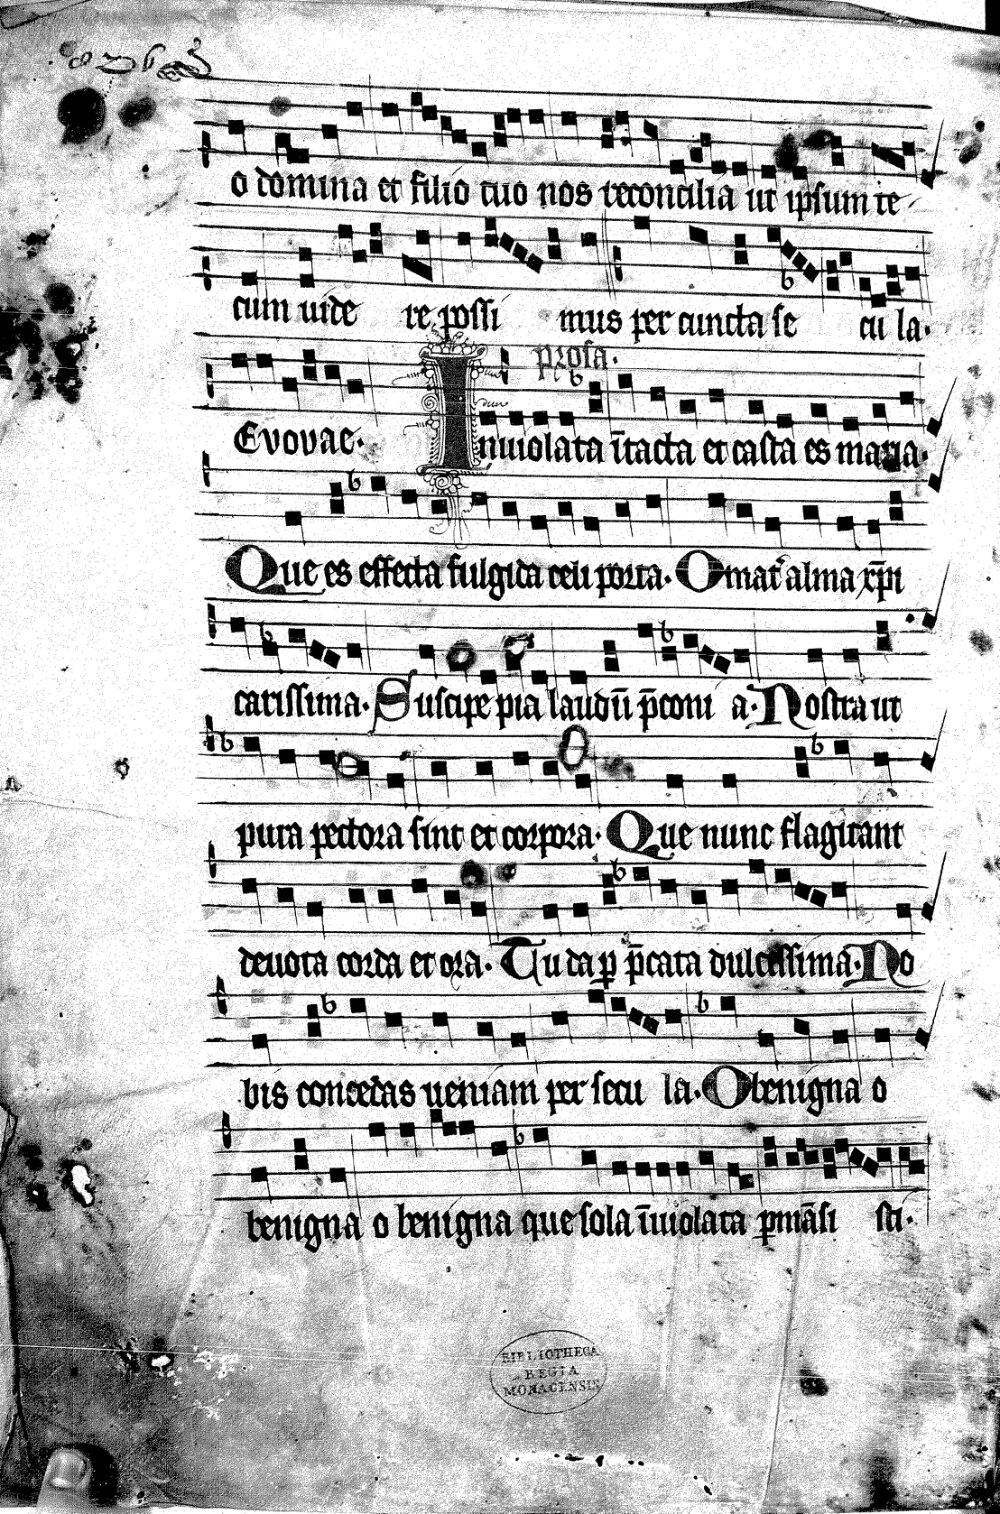 o domina et filio tuo nos reconcilia ut ipsum te
cum uide re possi mus per cuncta se cu la.
prosa.
Evovae. Inuiolata ītacta et casta es maria.
Que es effecta fulgida celi porta. O mat̄ alma xp̄i
carissima. Suscipe pia laudū p̄coni a. Nostra ut
pura pectora sint et corpora. Que nunc flagitant
deuota corda et ora. Tu da ꝑ p̄cata dulcissima. No
bis concedas ueniam per secu la. O benigna o
benigna o benigna que sola īuiolata ꝑmāsi sti.
BIBLIOTHECA
REGIA
MONACENSIS